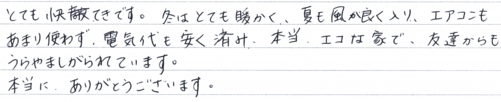 とても快敵てきです。冬はとても暖かく、夏も風が良く入り、エアコンも
あまり使わず、電気代も安く済み、本当、エコな家で、友達からも
うらやましがられています。
本当に、ありがとうございます。